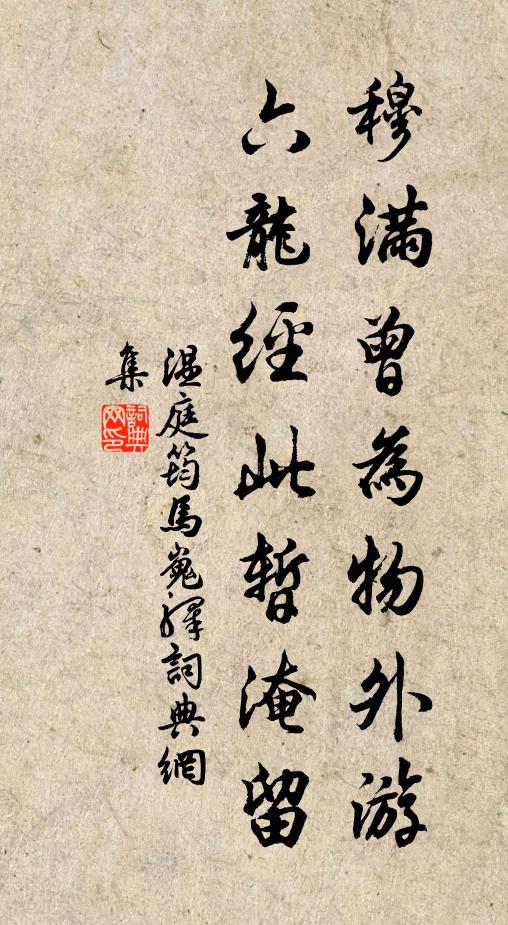 穆滿曾為物外游
六龍經此暫淹留
溫庭筠馬嵬驛詞典網
集
詞典
网印